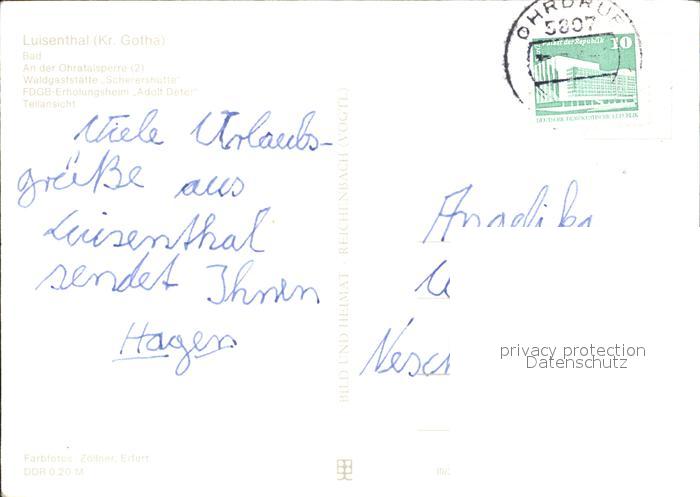 Luisenthal (Kr. Gotha)
Bad
An der Ohratalsperre (2)
Waldgaststätte „Scherershütte"
FDGB-Erholungsheim „Adolf Deter"
Teilansicht
Viele Urlaubs-
grüße aus
Luisenthal
sendet Ihnen
Hagen
Farbfotos: Zöllner, Erfurt
DDR 0,20 M
BILD UND HEIMAT REICHENBACH (VOGTL)
OHRDRUF
5807
Palast der Republik 10
DEUTSCHE DEMOKRATISCHE REPUBLIK
privacy protection
Datenschutz